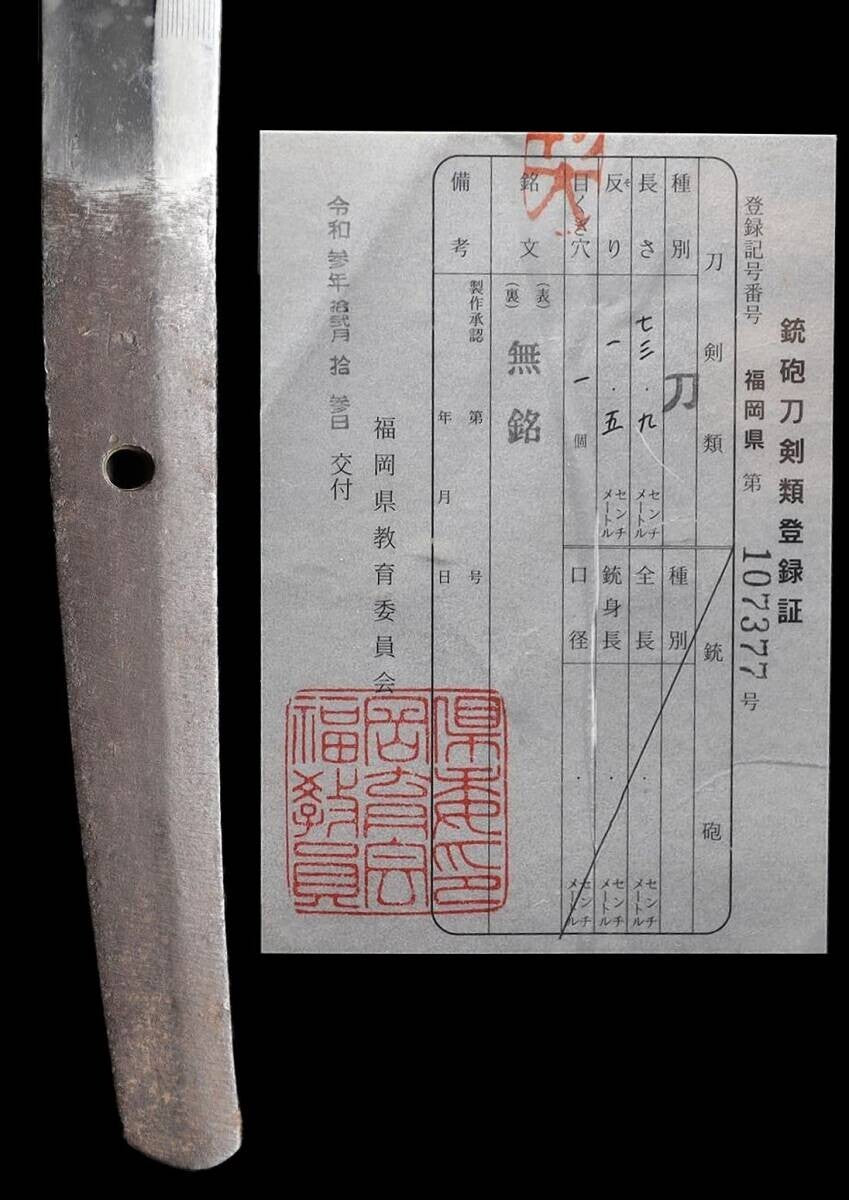 銃砲刀剣類登録証
登録記号番号 福岡県 第 107377 号
刀剣類 銃砲
種別 刀 種別
長さ 七三.九 センチメートル 全長 . センチメートル
反り 一.五 センチメートル 銃身長 . センチメートル
そ
目くぎ穴 一 個 口径 . センチメートル
銘文 (表) (裏) 無銘
備考 製作承認 第 号
年 月 日
福岡県教育委員会
令和 参年 拾弐月 拾 参日 交付
県委印
岡育会
福教員